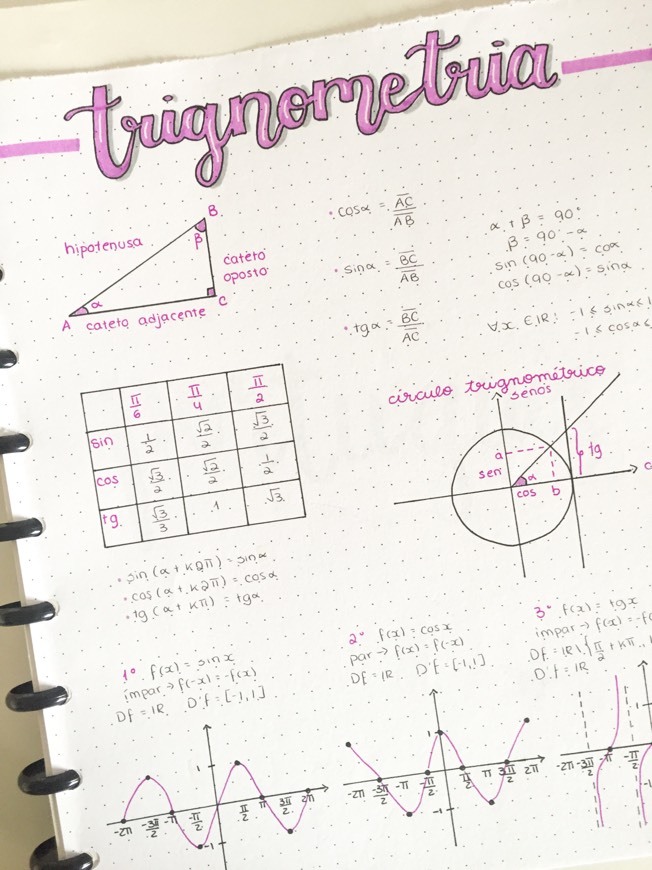 trignometria
B
β
hipotenusa
cateto
oposto
α
C
A cateto adjacente
• cosα = AC/AB
• sinα = BC/AB
• tgα = BC/AC
α + β = 90°
β = 90° - α
sin (90 - α) = cosα
cos (90 - α) = sinα
∀x ∈ IR: -1 ≤ sinα ≤ 1
-1 ≤ cosα ≤
π/6 π/4 π/2
sin 1/2 √2/2 √3/2
cos √3/2 √2/2 1/2
tg √3/3 1 √3
círculo trignométrico
senos
a
sen
α
cos b
tg
• sin (α + k2π) = sinα
• cos (α + k2π) = cosα
• tg (α + kπ) = tgα
1° f(x) = sin x
ímpar → f(-x) = -f(x)
Df = IR D'f = [-1,1]
2° f(x) = cos x
par → f(x) = f(-x)
Df = IR D'f = [-1,1]
3° f(x) = tg x
ímpar → f(x) = -f(
Df = IR \ {π/2 + kπ,
D'f = IR
1
-2π -3π/2 -π -π/2 π/2 π 3π/2 2π
-1
1
-2π -3π/2 -π -π/2 π/2 π 3π/2 2π
-1
1
-2π -3π/2 -π -π/2
-1